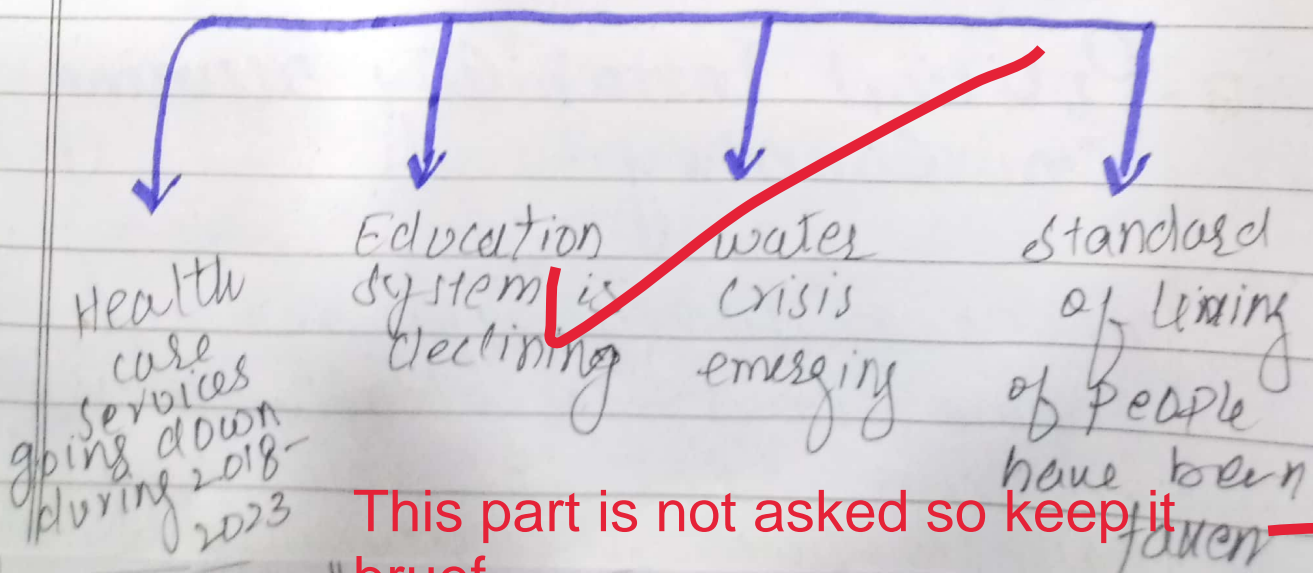 Health
care
services
going down
during 2018-
2023
Education
system is
declining
water
crisis
emerging
standard
of living
of people
have been
This part is not asked so keep it
bruef